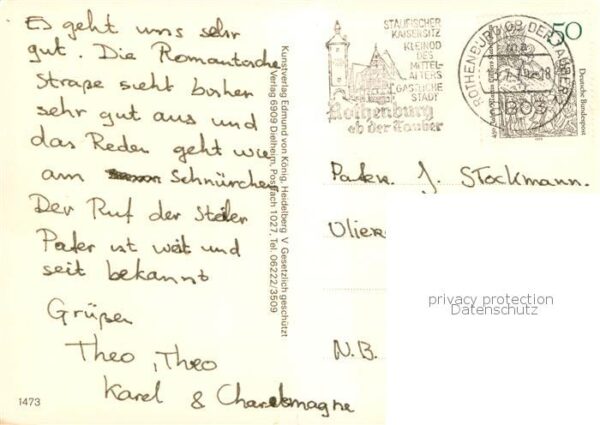 Es geht uns sehr
gut. Die Romantische
Straße sieht bisher
sehr gut aus und
das Reden geht wie
am Schnürchen
Der Ruf der Steiler
Pater ist weit und
seit bekannt
Grüßen
Theo, Theo
Karel & Charlesmagne
1473
Kunstverlag Edmund von König, Heidelberg V Gesetzlich geschützt
Verlag 6909 Dielheim, Postfach 1027, Tel. 06222/3509
STAUFISCHER
KAISERSITZ
KLEINOD
DES
MITTEL-
ALTERS
GASTLICHE
STADT
Rothenburg
ob der Tauber
ROTHENBURG OB DER TAUBER
8803
50
Deutsche Bundespost
Pater. J. Stockmann.
N.B.
privacy protection
Datenschutz